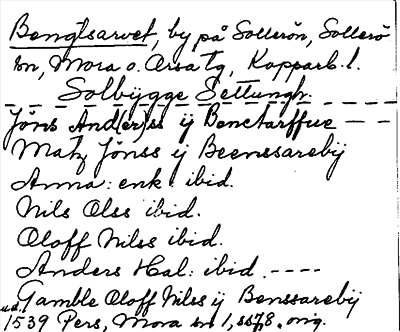 Bengtsarvet, by på Sollerön, Sollerö
sn, Mora o. Orsa tg, Kopparb. l.
Solbygge Settungh.
Jöns And(er)ss ij Benctarffue — —
Matz Jönss ij Beenssarebij
Anna: enk: ibid.
Nils Olss ibid.
Oloff Nilss ibid.
Anders Hal: ibid - - - -
Gamble Oloff Nilss ij Benssarebij
u.d. 1539 Pers, Mora sn 1, ss78, orig.